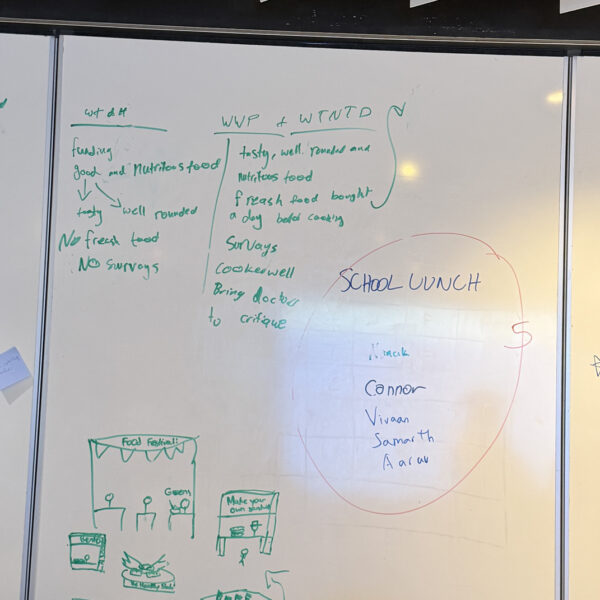 WTdH
funding
good and Nutritous food
tasty well rounded
No freash food
No surveys
WVP + WTNTD
tasty, well rounded and
nutritous food
freash food bought
a day before cooking
Survays
Cooker well
Bring doctor
to critique
SCHOOL LUNCH
5
Connor
Vivaan
Samarth
Aarav
Food Festival!
Greens
Make your
own
The Healthy